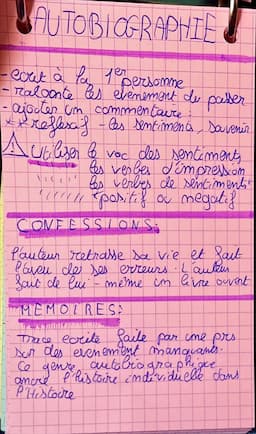 AUTOBIOGRAPHIE
- ecrit à la 1er personne
- raconte les evenement du passer
- ajouter un commentaire :
** reflexif - les sentiments, souvenir
⚠ Utiliser le voc des sentiments
"""" les verbes d'impression
"""" les verbes de sentiments
"""""" positif ou négatif
CONFESSIONS:
l'auteur retrasse sa vie et fait
l'aveu des ses erreurs. L'auteur
fait de lui-même un livre ouvert
MÉMOIRES:
Trace ecrite faite par une prs
sur des evenement marquants.
Ce genre autobiographique
ancre l'histoire individuelle dans
l'Histoire